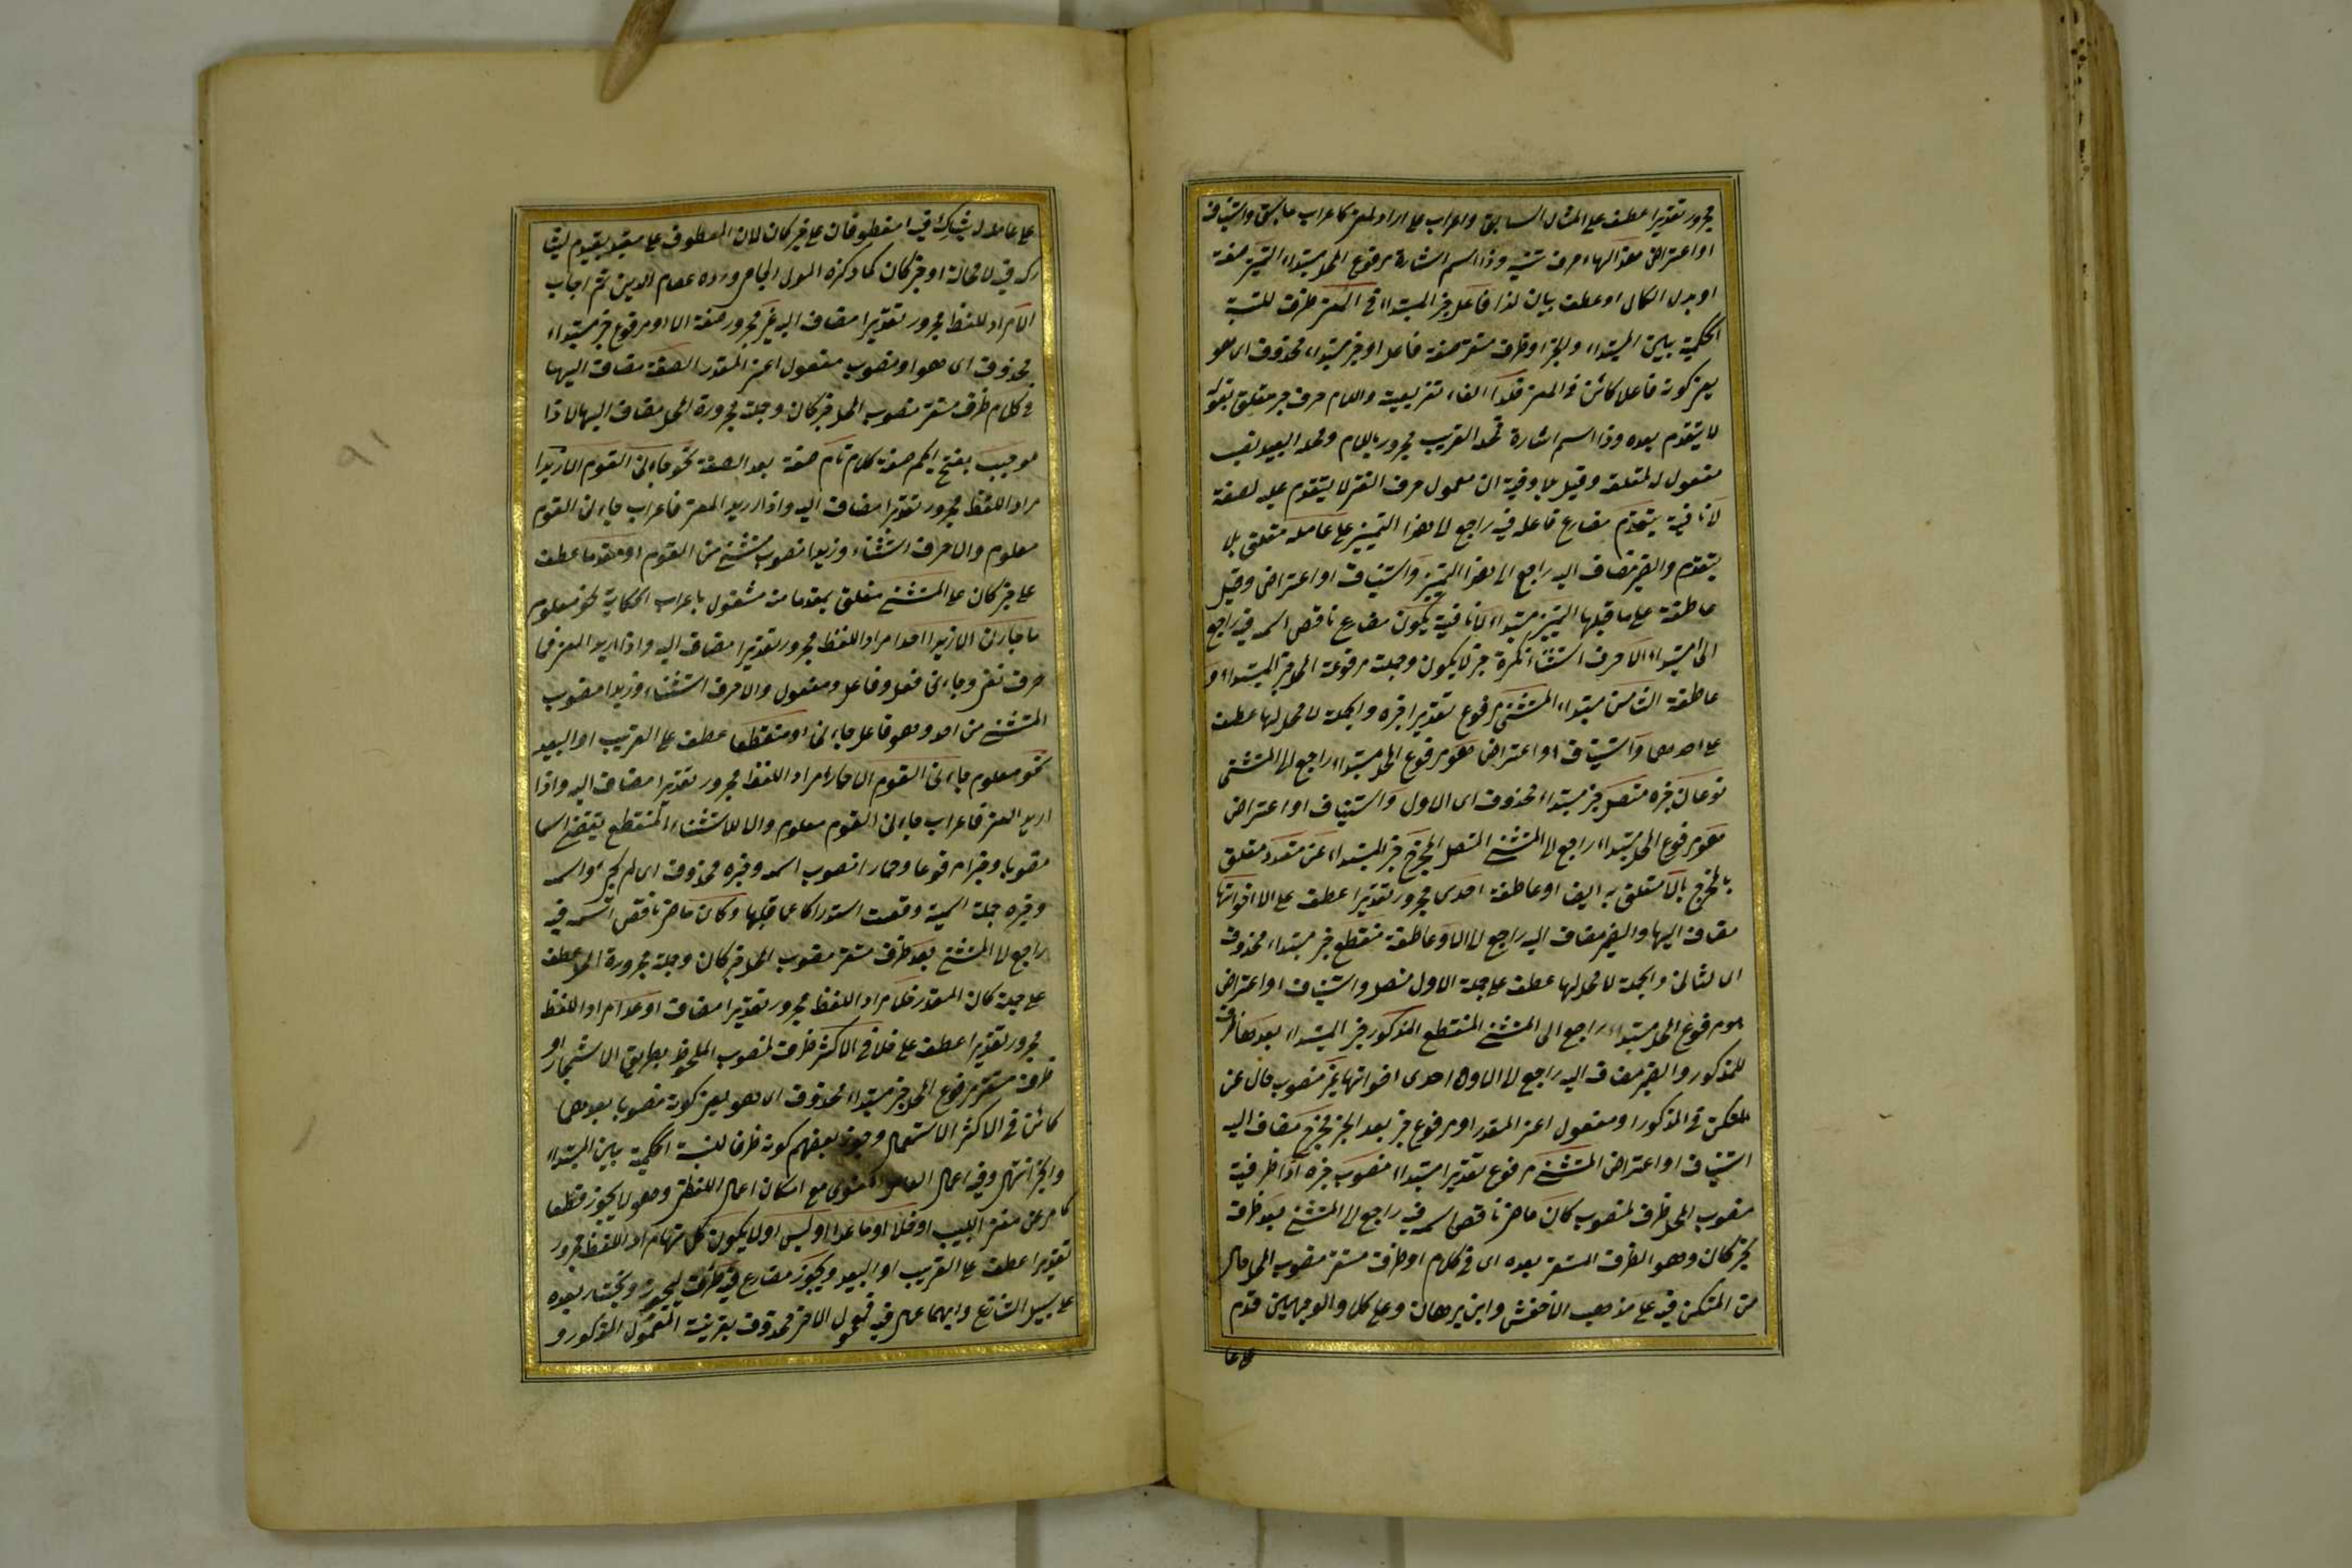 مجرور تقديرا عطف على المثال السابق واعراب على ارادة المعنى كاعراب ما سبق واستيناف
او اعتراض هذا الهاء حرف تنبيه وذا اسم اشارة مرفوع المحل مبتداء التمييز صفة
او بدل الكل او عطف بيان لذا فاعل خبر المبتداء في المعنى ظرف للنسبة
الحكمية بين المبتداء والخبر او ظرف مستقر صفة فاعل او خبر مبتداء محذوف اى هو
يعنى كونه فاعلا كائن في المعنى فلذا الفاء تفريعية واللام حرف جر متعلق بقوله
لا يتقدم بعده وذا اسم اشارة محله القريب مجرور باللام ومحله البعيد نصب
مفعول له لمتعلقه وقيل بلا وفيه ان معمول حرف النفى لا يتقدم عليه لضعفه
لا نافية يتقدم مضارع فاعله فيه راجع لا هذا التمييز على عامله متعلق بلا
يتقدم والضمير مضاف اليه راجع الى هذا التمييز واستيناف او اعتراض وقيل
عاطفة على ما قبلها التمييز مبتداء لا نافية يكون مضارع ناقص اسمه فيه راجع
الى المبتداء الا حرف استثناء نكرة خبر لا يكون وجملته مرفوعة المحل خبر المبتداء و
عاطفة الثامن مبتداء المستثنى مرفوع تقديرا خبره والجملة لا محل لها عطف
على احدها واستيناف او اعتراض هو مرفوع المحل مبتداء راجع الى المستثنى
نوعان خبره متصل خبر مبتداء محذوف اى الاول واستيناف او اعتراض
هو مرفوع المحل مبتداء راجع لا المستثنى المتصل المخرج خبر المبتداء عن متعدد متعلق
بالمخرج بالا متعلق به ايضا او عاطفة احدى مجرور تقديرا عطف على الا اخواتها
مضاف اليها والضمير مضاف اليه راجع لا الا وعاطفة منقطع خبر مبتداء محذوف
اى الثانى والجملة لا محل لها عطف على جملة الاول متصل واستيناف او اعتراض
هو مرفوع المحل مبتداء راجع الى المستثنى المنقطع المذكور خبر المبتداء بعدها ظرف
للمذكور والضمير مضاف اليه راجع لا الا واحدى اخواتها غير منصوب حال عن
المستكن في المذكور او مفعول اعنى المقدر او مرفوع خبر بعد الخبر مخرج مضاف اليه
استيناف او اعتراض المستثنى مرفوع تقديرا مبتداء منصوب خبره اذا ظرفية
منصوب المحل ظرف لمنصوب كان ماض ناقص اسمه فيه راجع الى المستثنى بعد ظرف
لخبر كان وهو الظرف المستقر بعده اى في كلام او ظرف مستقر منصوب المحل حال
من المستكن فيه على مذهب الاخفش وابن برهان وعلى كل والوجهين قدم
على عا
على عامله ليشارك فيه منقطع فان على خبر كان لان المعطوف على مقيد بقيد يقدم ليشا
ركه فيه لا محالة او خبر كان كما ذكره المولى الجامى ورده عصام الدين ثم اجاب
الا مراد اللفظ مجرور تقديرا مضاف اليه غير مجرور صفة الا او مرفوع خبر مبتداء
محذوف اى هو او منصوب مفعول اعنى المقدر الصفة مضاف اليها
في كلام ظرف مستقر منصوب المحل خبر كان وجملته مجرورة المحل مضاف اليها لاذا
موجب بفتح الجيم صفة كلام تام صفة بعد الصفة نحو جاءنى القوم الا زيدا
مراد اللفظ مجرور تقديرا مضاف اليه واذا اريد المعنى فاعراب جاءنى القوم
معلوم والا حرف استثناء وزيدا منصوب مستثنى من القوم او مقدما عطف
على خبر كان على المستثنى متعلق بمقدما منه مشغول باعراب الحكاية نحو معلوم
ما جاءنى الا زيدا احد مراد اللفظ مجرور تقديرا مضاف اليه واذا اريد المعنى فما
حرف نفى وجاءنى فعل وفاعل ومفعول والا حرف استثناء وزيدا منصوب
المستثنى من احد وهو فاعل جاءنى او منقطعا عطف على القريب او البعيد
نحو معلوم جاءنى القوم الا حمارا مراد اللفظ مجرور تقديرا مضاف اليه واذا
اريد المعنى فاعراب جاءنى القوم معلوم والا للاستثناء المنقطع يقتضى اسما
منصوبا وخبرا مرفوعا وحمارا منصوب اسمه وخبره محذوف اى لم يجئ واسمه
وخبره جملة اسمية وقعت استدراكا عما قبلها وكان ماض ناقص اسمه فيه
راجع لا المستثنى بعد ظرف مستقر منصوب المحل خبر كان وجملته مجرورة المحل عطف
على جملة كان المقدر خلا مراد اللفظ مجرور تقديرا مضاف او عدا مراد اللفظ
مجرور تقديرا عطف على خلا في الاكثر ظرف لمنصوب الملحوظ بطريق الاستجار او
ظرف مستقر مرفوع المحل خبر مبتداء محذوف اى هو يعنى كونه منصوبا بعدهما
كائن في الاكثر الاستعمال وجوز بعضهم كونه ظرفا لنسبة الحكمية بين المبتداء
والخبر انتهى وفيه اعمال العامل المعنوى مع امكان اعمال اللفظى وهو لا يجوز قطعا
كما مر عن مغنى اللبيب او خلا او ما عدا او ليس او لا يكون كل منها مراد اللفظ مجرور
تقديرا عطف على القريب او البعيد ويجوز مضارع فيه ظرف ليجوز ويختار بعده
على سبيل التنازع وايهما عمل فيه فمعمول الآخر محذوف بقرينة المعمول المذكور و
٩١